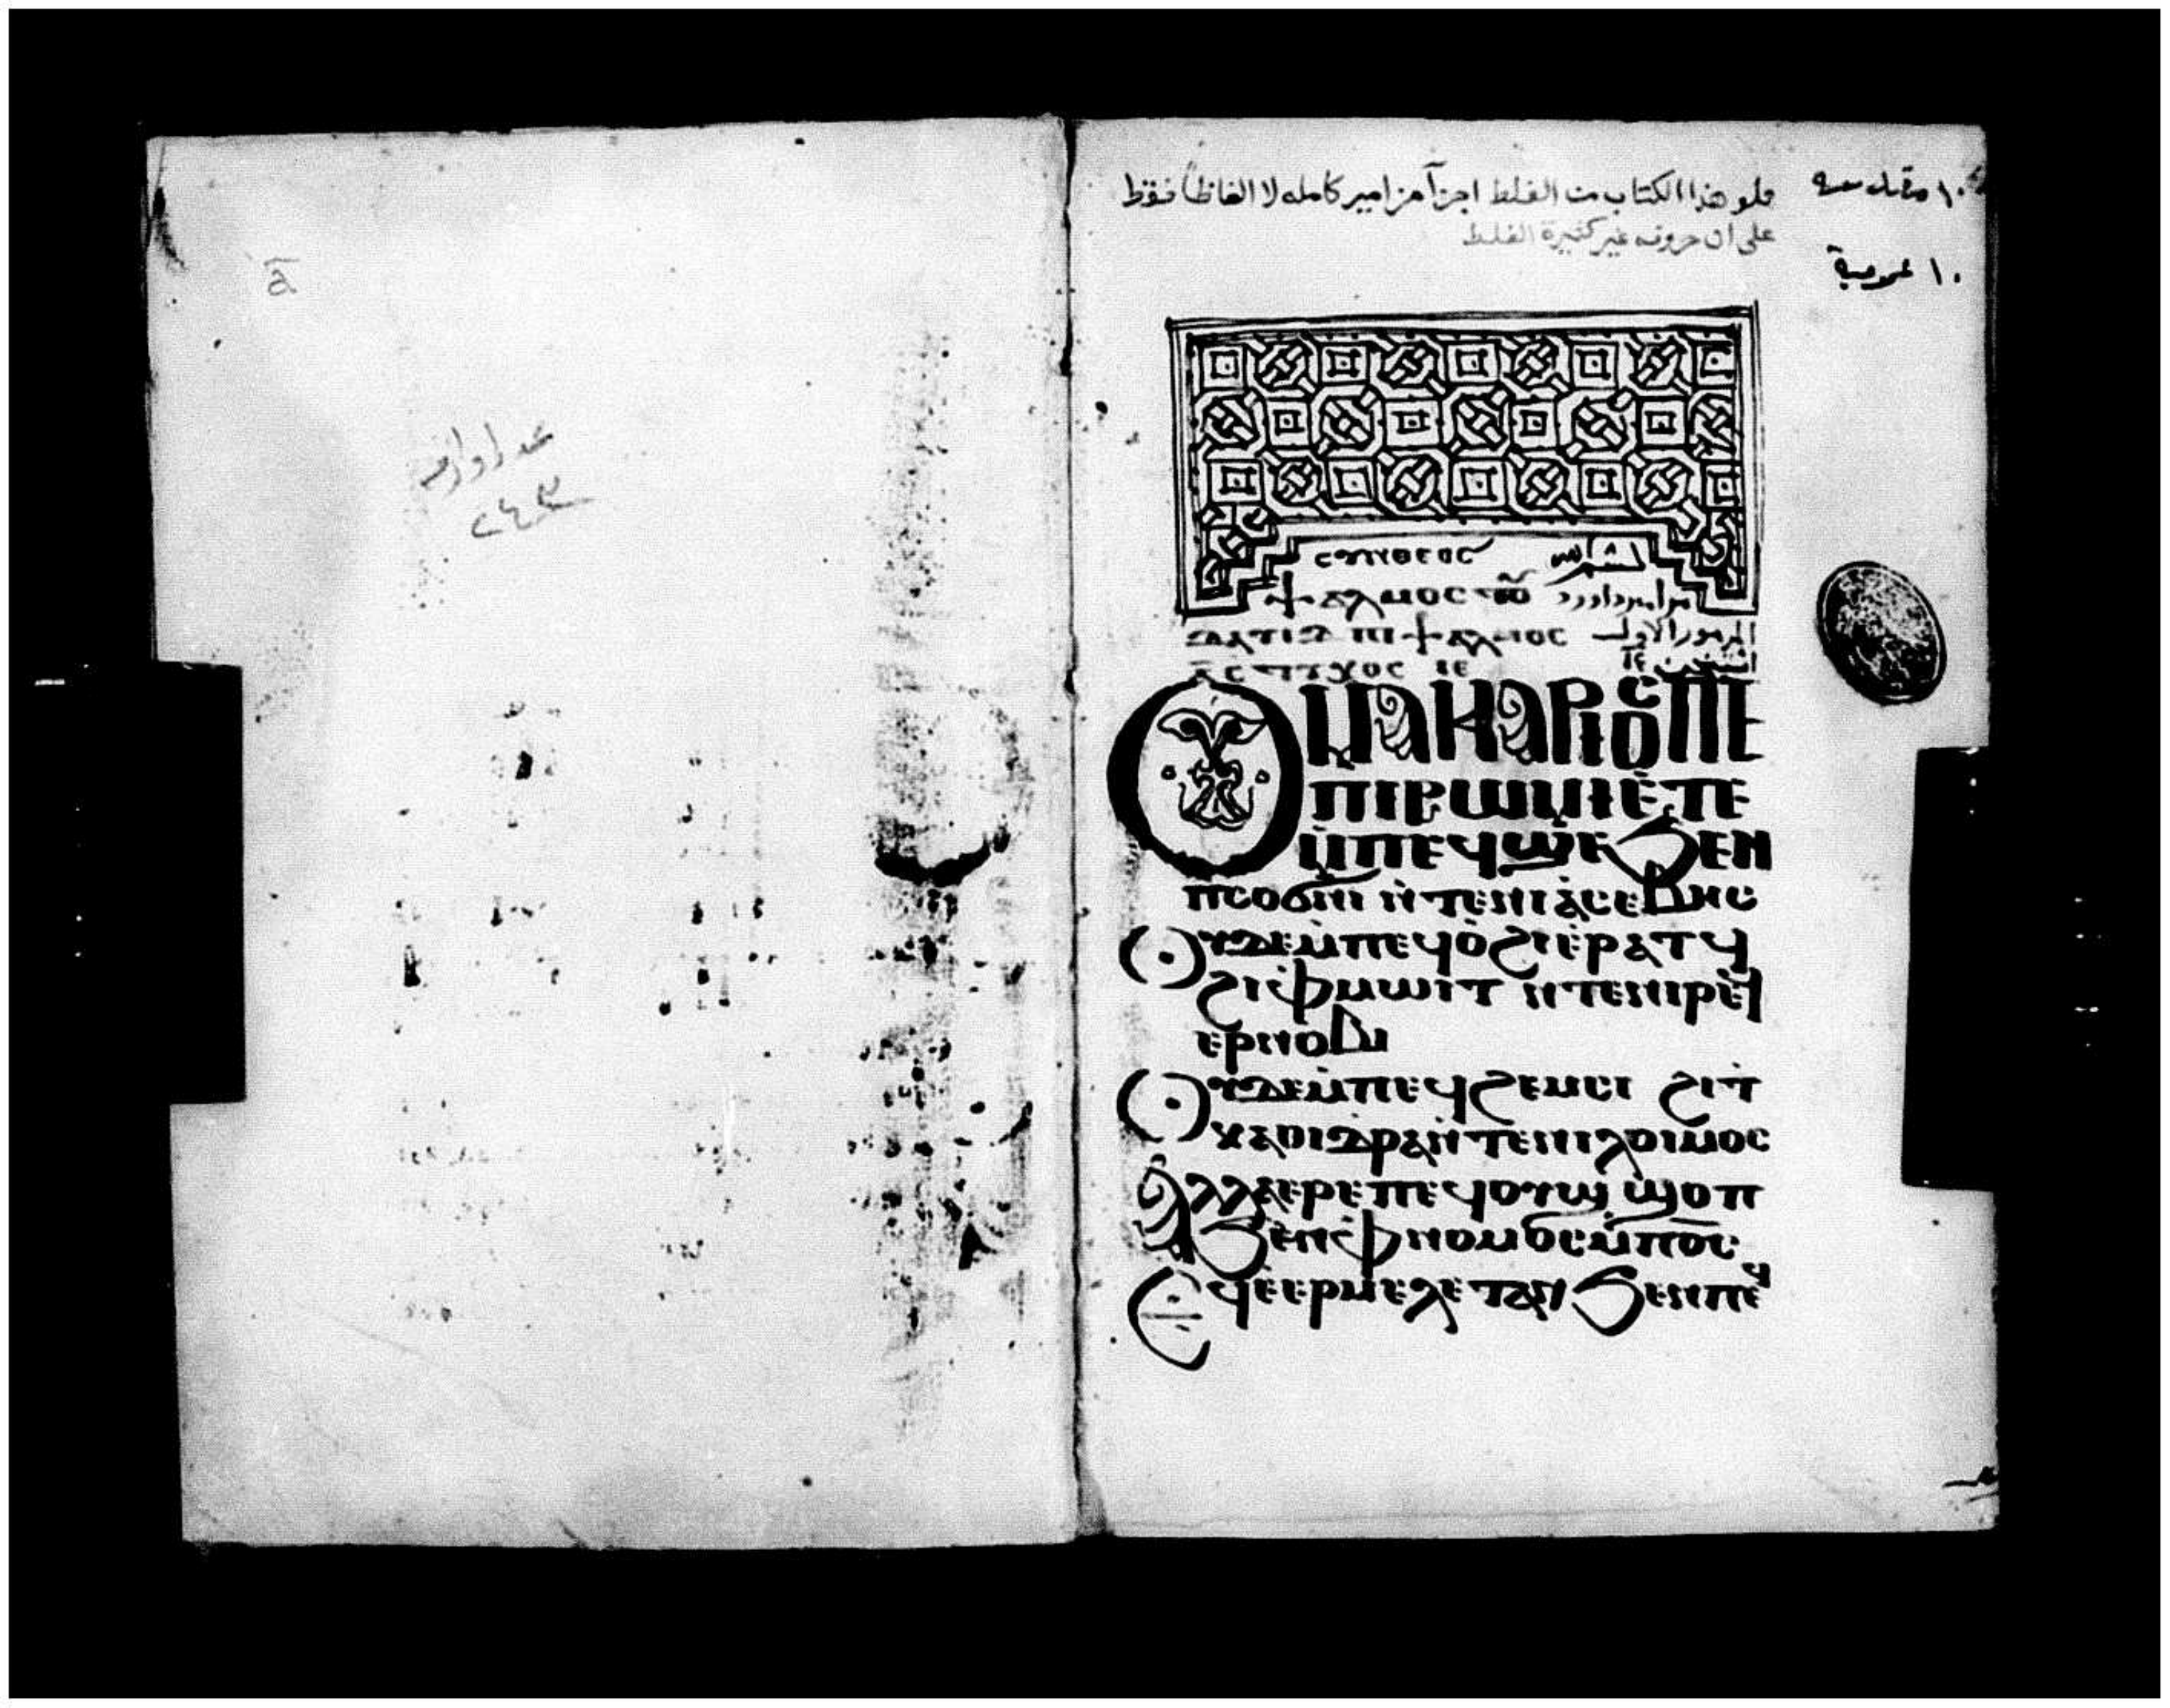 a
عدد اوراقه
٢٤٣
ملو هذا الكتاب من الغلط اجزآ مزامير كامله لا الفاظاً فقط
على ان حروفه غير كثيرة الغلط
١٠ عمومية
ⲥⲩⲛⲑⲉⲟⲥ
ⲯⲁⲗⲙⲟⲥ ⲧⲟⲩ مزامير داوود
ⲇⲁⲧⲓⲇ ⲡⲓⲯⲁⲗⲙⲟⲥ المزمور الاول
ⲥⲧⲩⲭⲟⲥ ⲓⲉ
Ⲟⲩⲙⲁⲕⲁⲣⲓⲟⲥ ⲡⲉ
ⲡⲓⲣⲱⲙⲓ ⲉ̀ⲧⲉ
ⲙ̀ⲡⲉϥϣⲉ ϧⲉⲛ
ⲡⲥⲟϭⲛⲓ ⲛ̀ⲧⲉⲛⲓⲁ̀ⲥⲉⲃⲏⲥ
Ⲟⲩⲇⲉ ⲙ̀ⲡⲉϥⲟ̀ϩⲓ ⲉ̀ⲣⲁⲧϥ
ϩⲓ ⲫⲙⲱⲓⲧ ⲛ̀ⲧⲉⲛⲓⲣⲉϥ
ⲉⲣⲛⲟⲃⲓ
Ⲟⲩⲇⲉ ⲙ̀ⲡⲉϥϩⲉⲙⲥⲓ ϩⲓⲧ
ⲕⲁⲑⲓⲇⲣⲁ ⲛ̀ⲧⲉⲛⲓⲗⲟⲓⲙⲟⲥ
Ⲁⲗⲗⲁ ⲉⲣⲉ ⲡⲉϥⲟⲩⲱϣ ϣⲟⲡ
ϧⲉⲛ ⲫⲛⲟⲙⲟⲥ ⲙ̀ⲡⲟ̅ⲥ̅
Ⲉϥⲉ̀ⲉⲣⲙⲉⲗⲉⲧⲁⲛ ϧⲉⲛ ⲡⲉϥ